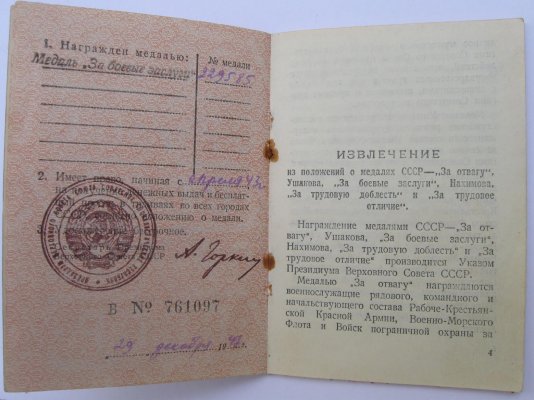 1. Награжден медалью:
№ медали
Медаль „За боевые заслуги"
329585
2. Имеет право, начиная с
апреля 43г.
и бесплат-
во всех городах
положению о медали.
3.
срочное.
А. Горкин
В № 761097
29 декабря 194
ИЗВЛЕЧЕНИЕ
из положений о медалях СССР—„За отвагу",
Ушакова, „За боевые заслуги", Нахимова,
„За трудовую доблесть" и „За трудовое
отличие".
Награждение медалями СССР—„За от-
вагу", Ушакова, „За боевые заслуги",
Нахимова, „За трудовую доблесть" и „За
трудовое отличие" производится Указом
Президиума Верховного Совета СССР.
Медалью „За отвагу" награждаются
военнослужащие рядового, командного и
начальствующего состава Рабоче-Крестьян-
ской Красной Армии, Военно-Морского
Флота и Войск пограничной охраны за
4